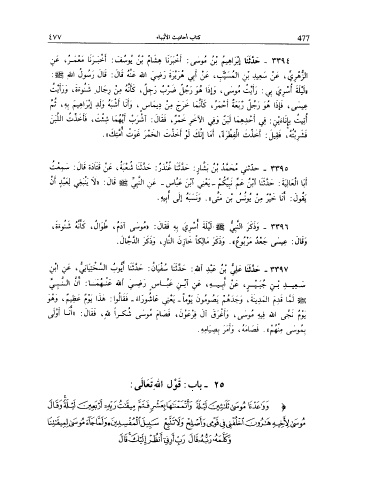 477 كتاب أحاديث الأنبياء ٤٧٧
٣٣٩٤ - حَدَّثَنَا إِبْرَاهِيمُ بْنُ مُوسَى: أَخْبَرَنَا هِشَامُ بْنُ يُوسُفَ: أَخْبَرَنَا مَعْمَرٌ، عَنِ
الزُّهْرِيِّ، عَنْ سَعِيدِ بْنِ المُسَيَّبِ، عَنْ أَبِي هُرَيْرَةَ رَضِيَ اللهُ عَنْهُ قَالَ: قَالَ رَسُولُ اللهِ ﷺ:
«لَيْلَةَ أُسْرِيَ بِي: رَأَيْتُ مُوسَى، وَإِذَا هُوَ رَجُلٌ ضَرْبٌ رَجِلٌ، كَأَنَّهُ مِنْ رِجَالِ شَنُوءَةَ، وَرَأَيْتُ
عِيسَى، فَإِذَا هُوَ رَجُلٌ رَبْعَةٌ أَحْمَرُ، كَأَنَّمَا خَرَجَ مِنْ دِيمَاسٍ، وَأَنَا أَشْبَهُ وَلَدِ إِبْرَاهِيمَ بِهِ، ثُمَّ
أُتِيتُ بِإِنَاءَيْنِ: فِي أَحَدِهِمَا لَبَنٌ وَفِي الآخَرِ خَمْرٌ، فَقَالَ: اشْرَبْ أَيَّهُمَا شِئْتَ، فَأَخَذْتُ اللَّبَنَ
فَشَرِبْتُهُ، فَقِيلَ: أَخَذْتَ الفِطْرَةَ، أَمَا إِنَّكَ لَوْ أَخَذْتَ الخَمْرَ غَوَتْ أُمَّتُكَ».
٣٣٩٥ - حدثني مُحَمَّدُ بْنُ بَشَّارٍ: حَدَّثَنَا غُنْدَرٌ: حَدَّثَنَا شُعْبَةُ، عَنْ قَتَادَةَ قَالَ: سَمِعْتُ
أَبَا العَالِيَةِ: حَدَّثَنَا ابْنُ عَمِّ نَبِيِّكُمْ -يَعْنِي ابْنَ عَبَّاسٍ- عَنِ النَّبِيِّ ﷺ قَالَ: «لَا يَنْبَغِي لِعَبْدٍ أَنْ
يَقُولَ: أَنَا خَيْرٌ مِنْ يُونُسَ بْنِ مَتَّى». وَنَسَبَهُ إِلَى أَبِيهِ.
٣٣٩٦ - وَذَكَرَ النَّبِيُّ ﷺ لَيْلَةَ أُسْرِيَ بِهِ فَقَالَ: «مُوسَى آدَمُ، طُوَالٌ، كَأَنَّهُ مِنْ رِجَالِ شَنُوءَةَ،
وَقَالَ: عِيسَى جَعْدٌ مَرْبُوعٌ». وَذَكَرَ مَالِكاً خَازِنَ النَّارِ، وَذَكَرَ الدَّجَّالَ.
٣٣٩٧ - حَدَّثَنَا عَلِيُّ بْنُ عَبْدِ اللهِ: حَدَّثَنَا سُفْيَانُ: حَدَّثَنَا أَيُّوبُ السَّخْتِيَانِيُّ، عَنِ ابْنِ
سَعِيدِ بْنِ جُبَيْرٍ، عَنْ أَبِيهِ، عَنِ ابْنِ عَبَّاسٍ رَضِيَ اللهُ عَنْهُمَا: أَنَّ النَّبِيَّ
ﷺ لَمَّا قَدِمَ المَدِينَةَ، وَجَدَهُمْ يَصُومُونَ يَوْماً- يَعْنِي عَاشُورَاءَ- فَقَالُوا: هَذَا يَوْمٌ عَظِيمٌ، وَهُوَ
يَوْمٌ نَجَّى اللهُ فِيهِ مُوسَى، وَأَغْرَقَ آلَ فِرْعَوْنَ، فَصَامَ مُوسَى شُكْراً للهِ، فَقَالَ: «أَنَا أَوْلَى
بِمُوسَى مِنْهُمْ». فَصَامَهُ، وَأَمَرَ بِصِيَامِهِ.
٢٥ - باب: قَوْلِ اللهِ تَعَالَى:
﴿ وَوَاعَدْنَا مُوسَى ثَلَاثِينَ لَيْلَةً وَأَتْمَمْنَاهَا بِعَشْرٍ فَتَمَّ مِيقَاتُ رَبِّهِ أَرْبَعِينَ لَيْلَةً وَقَالَ
مُوسَى لِأَخِيهِ هَارُونَ اخْلُفْنِي فِي قَوْمِي وَأَصْلِحْ وَلَا تَتَّبِعْ سَبِيلَ الْمُفْسِدِينَ * وَلَمَّا جَاءَ مُوسَى لِمِيقَاتِنَا
وَكَلَّمَهُ رَبُّهُ قَالَ رَبِّ أَرِنِي أَنظُرْ إِلَيْكَ قَالَ